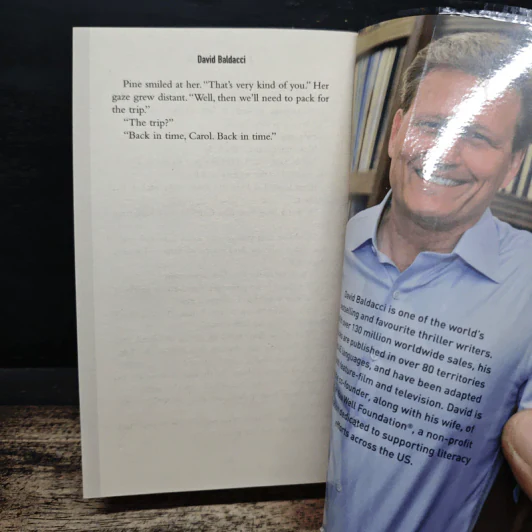 David Baldacci
Pine smiled at her. “That’s very kind of you.” Her
gaze grew distant. “Well, then we’ll need to pack for
the trip.”
“The trip?”
“Back in time, Carol. Back in time.”
David Baldacci is one of the world’s
and favourite thriller writers.
over 130 million worldwide sales, his
are published in over 80 territories
languages, and have been adapted
feature-film and television. David is
co-founder, along with his wife, of
Well Foundation®, a non-profit
dedicated to supporting literacy
efforts across the US.